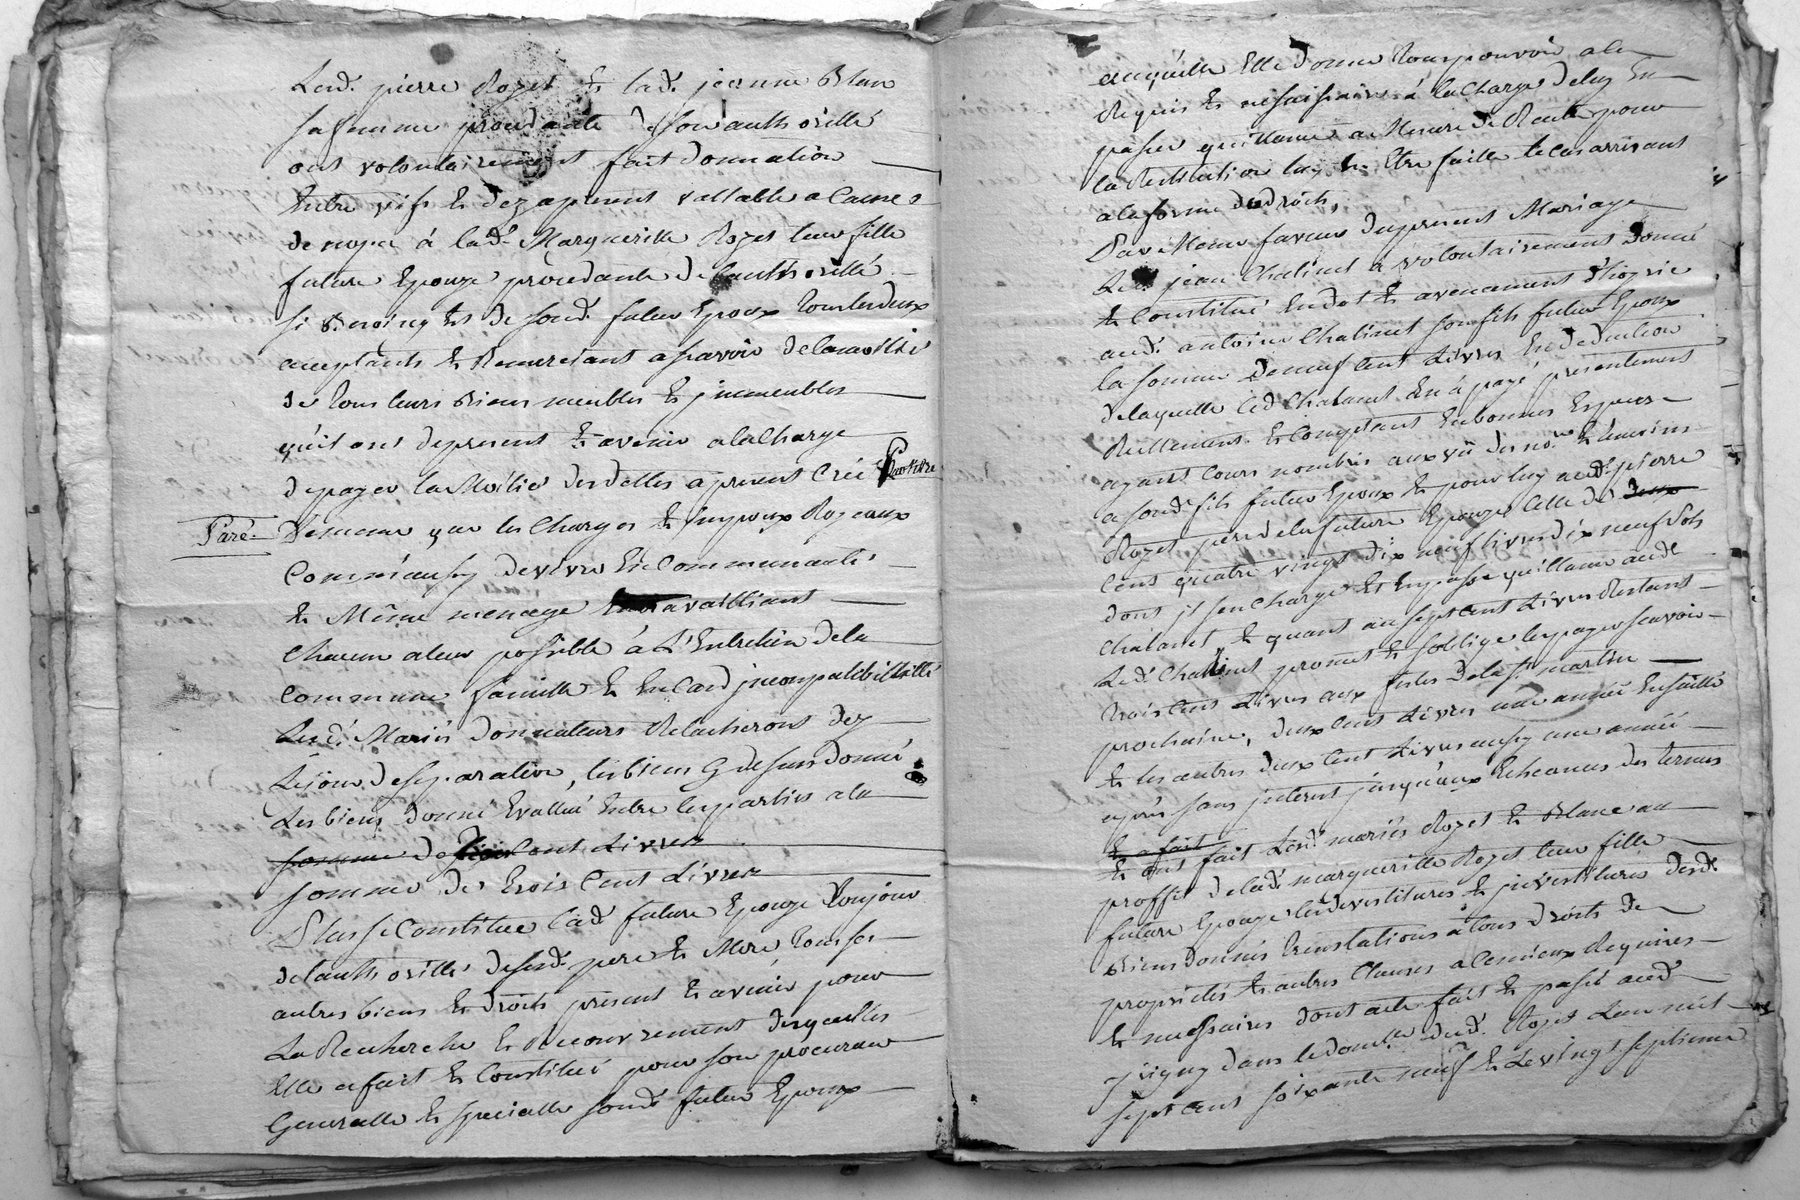 Lesd. pierre Rozet Et lad. jeanne Blanc
sa femme procedante de son authorillé
ont volontairement fait donnation
Entre vifs Et dez a present vallable a Cause
de nopce á lad. Marguerille Rozet leur fille
future Epouze procedante de lauthorillé
Et de sond. futeur Epoux tous les deux
acceptants Et Remerciant a scavoir de la moitié
de tous leurs Biens meubles Et jmmeubles
qu'il ont de present Et avenir a la Charge
de payer la Moitié des dettes a present Créé
Pare.
de meme que les Charges Et Rozeaux
Comm'aussy de vivre En Communauté
Et Même menage travailliant
Chacun a leur possible á L'Entretien de la
Commune famille Et En Cas d'jncompatibillité
Lesd. Mariés donnateurs Relacheront dez
Le jour de separation, les biens cy dessus donné
Les biens donné Evallué Entre les parties a la
somme de Cent Livres
somme de trois Cent Livres
Plus se Constitue lad. future Epouze toujour
de lauthorillé de sesd. pere Et Mere tous ses
autres biens Et droits present Et avenir pour
La Recherche Et Recouvrement desquelles
Elle a fait Et Constitué pour son procureur
Generalle Et specialle sond. futeur Epoux
auquelle Elle donne tous pouvoir a ce
Requis Et nessaissaire á la Charge de luy En
passer quittance a Mesure de Recette pour
la Restitution luy En Etre faitte le cas arrivant
a la forme du droits,
Pareillement faveur du present Mariage
Led. jean Chalinet a volontairement donné
Et Constitué En dot Et avencement d'hoyrie
aud. antoine Chalinet son fils futeur Epoux
la somme de neuf Cent Livres En deduction
de laquelle led Chalanet En á payé presentement
Reellement Et Comptant En bonnes Especes
ayant Cours nombrés aux vû des no.re Et temoins
a sond. fils futeur Epoux Et pour luy aud. pierre
Rozet pere de la future Epouze Celle de deux
Cent quatre vingt dix neuf livres dix neuf Sols
dont jl s'en Charge Et En passe quittance aud.
Chalanet Et quant au sept Cent Livres Restant
Led. Chalinet promet Et s'oblige les payer scavoir
trois Cens Livres aux festes de la St. martin
prochaine, deux Cens Livres une année En suitte
Et les autres deux Cent Livres aussy une année
apres sans jnterest jusqu'aux Echeances des termes
Et a fait
Et ont fait Lesd. mariés Rozet Et Blanc au
proffit de lad. marguerille Rozet leur fille
future Epouze les devestitures Et jnvestitures desd.
Biens donnés translations a tous droits de
proprietés Et autres Clauses a Ce mieux Requises
Et nessaires dont acte fait Et passé aud.
jzigny dans le domille dud. Rozet L'an mil
sept Cent soixante neuf Et Le vingt septieme